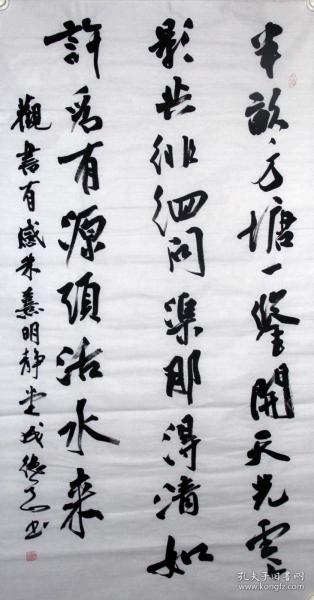 半畝方塘一鑒開天光雲
影共徘徊問渠那得清如
許為有源頭活水来
觀書有感朱熹明静堂書
孔夫子旧书网
www.kongfz.com